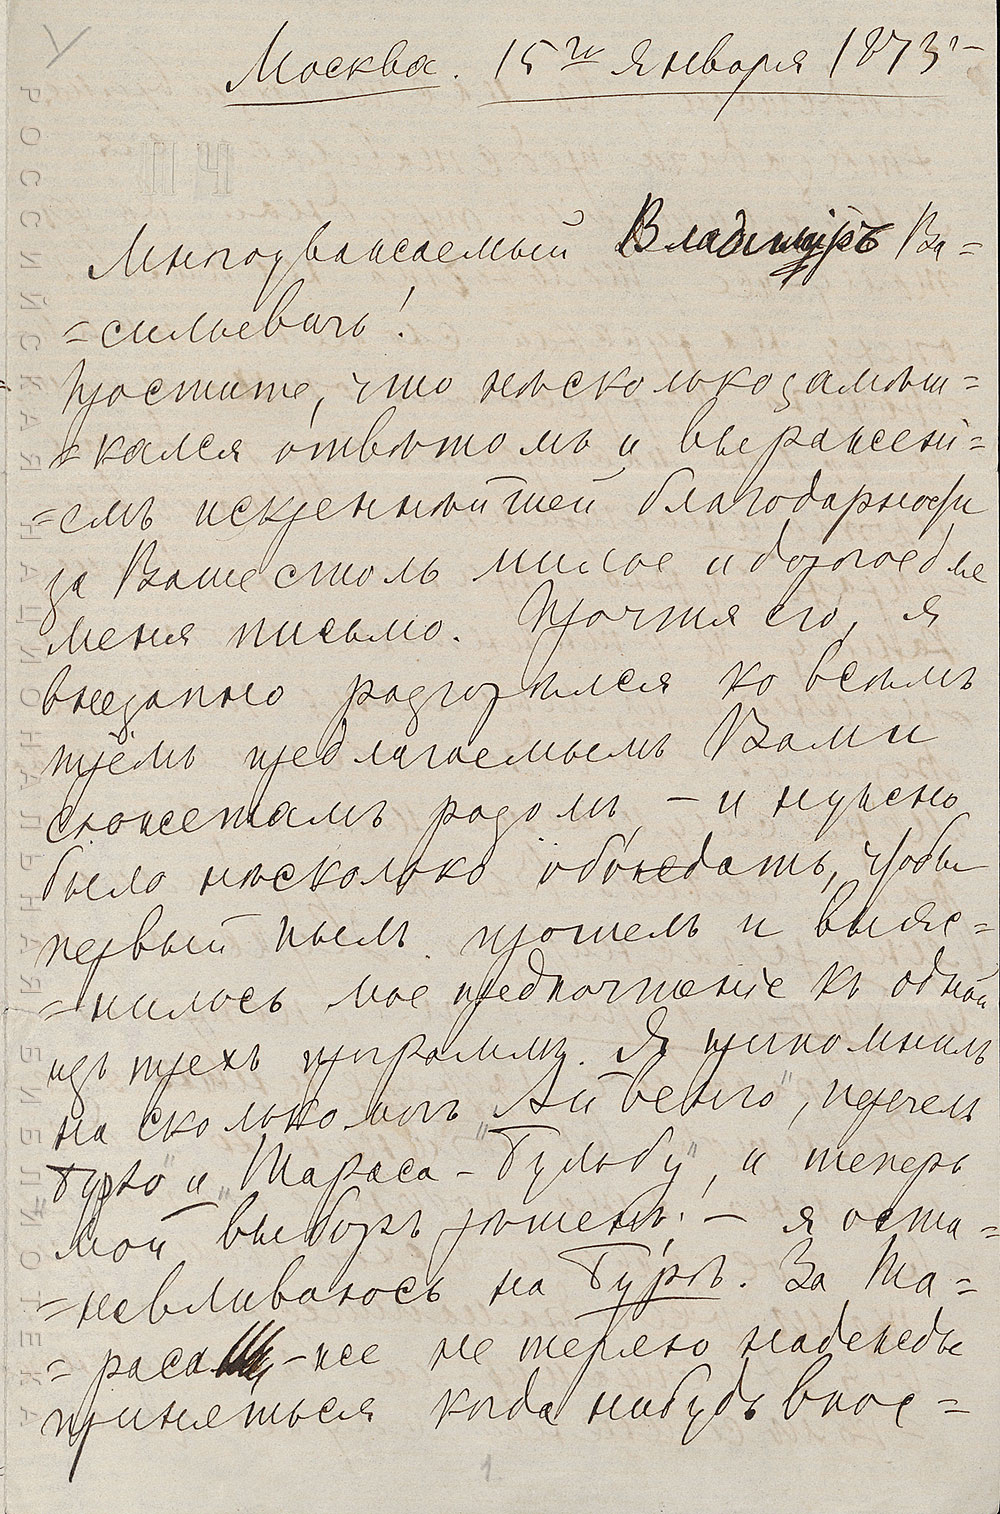 Москва. 15го Января 1873г
Многоуважаемый Владимiръ Ва=
=сильевичъ!
Простите, что нѣсколько замѣш=
=кался отвѣтомъ и выраженi=
=емъ искреннѣйшей благодарности
за Ваше столь милое и дорогое для
меня письмо. Прочтя его, я
внезапно разгорѣлся ко всѣмъ
тремъ предлагаемымъ Вами
сюжетамъ разомъ, – и нужно
было нѣсколько обождать, чтобы
первый пылъ прошелъ и выяс=
=нилось мое предпочтенiе къ одной
изъ трехъ программъ. Я припомнилъ
на сколько могъ "Айвенго", прочелъ
"Бурю" и "Тараса-Бульбу", и теперь
мой выборъ рѣшенъ: – я оста=
=невливаюсь на Бурѣ. За Та=
=раса – же не теряю надежды
приняться когда нибудь впос=
РОССИЙСКАЯ НАЦИОНАЛЬНАЯ БИБЛИОТЕКА
1